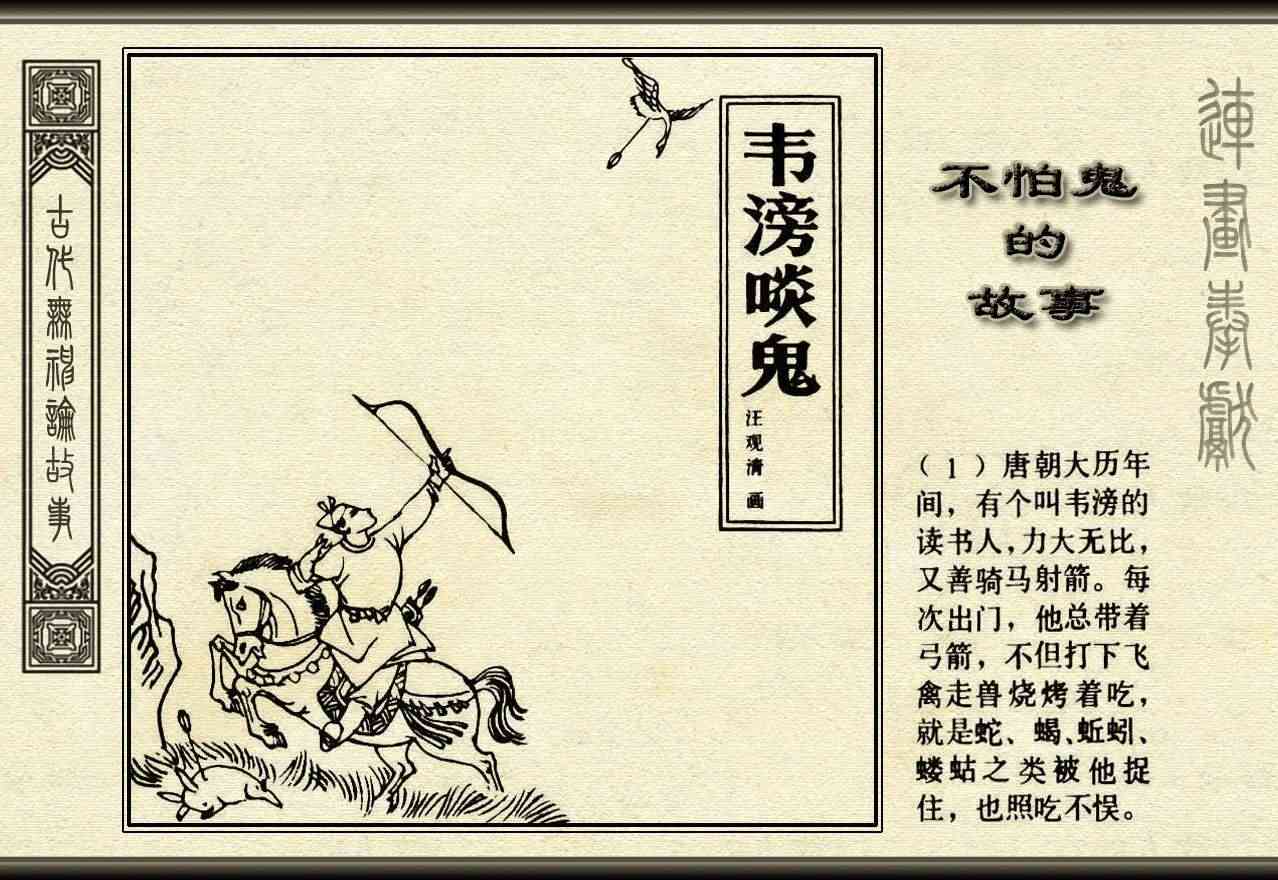 古代無神論故事
韦滂啖鬼
汪观清 画
不怕鬼
的
故事
連畫奉獻
（1）唐朝大历年
间，有个叫韦滂的
读书人，力大无比，
又善骑马射箭。每
次出门，他总带着
弓箭，不但打下飞
禽走兽烧烤着吃，
就是蛇、蝎、蚯蚓、
蝼蛄之类被他捉
住，也照吃不悮。